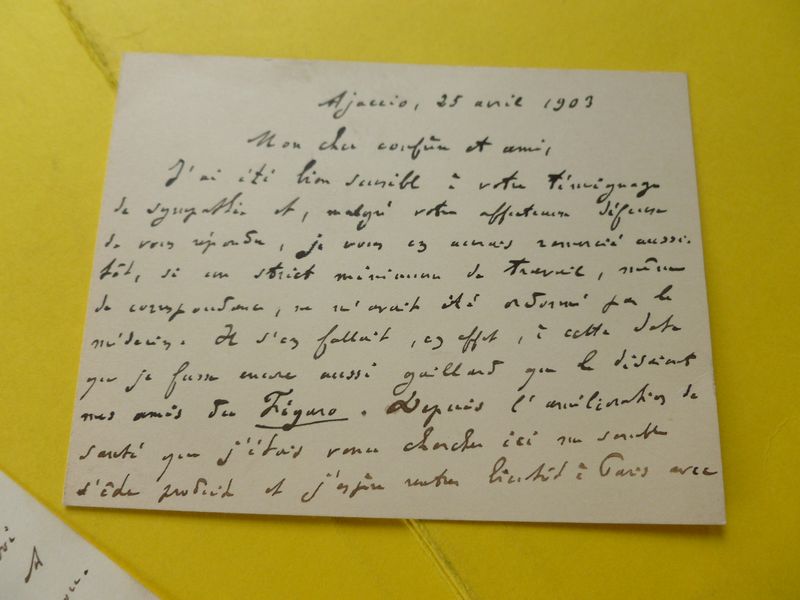 Ajaccio, 25 avril 1903
Mon cher confrère et ami,
J'ai été bien sensible à votre témoignage
de sympathie et, malgré votre affectueuse défense
de vous répondre, je vous en aurais remercié aussi-
tôt, si un strict minimum de travail, même
de correspondance, ne m'avait été ordonné par le
médecin. Il s'en fallait, en effet, à cette date
que je fusse encore aussi gaillard que le disaient
nos amis du Figaro. Depuis l'amélioration de
santé que j'étais venu chercher ici me semble
s'être produite et j'espère rentrer bientôt à Paris avec